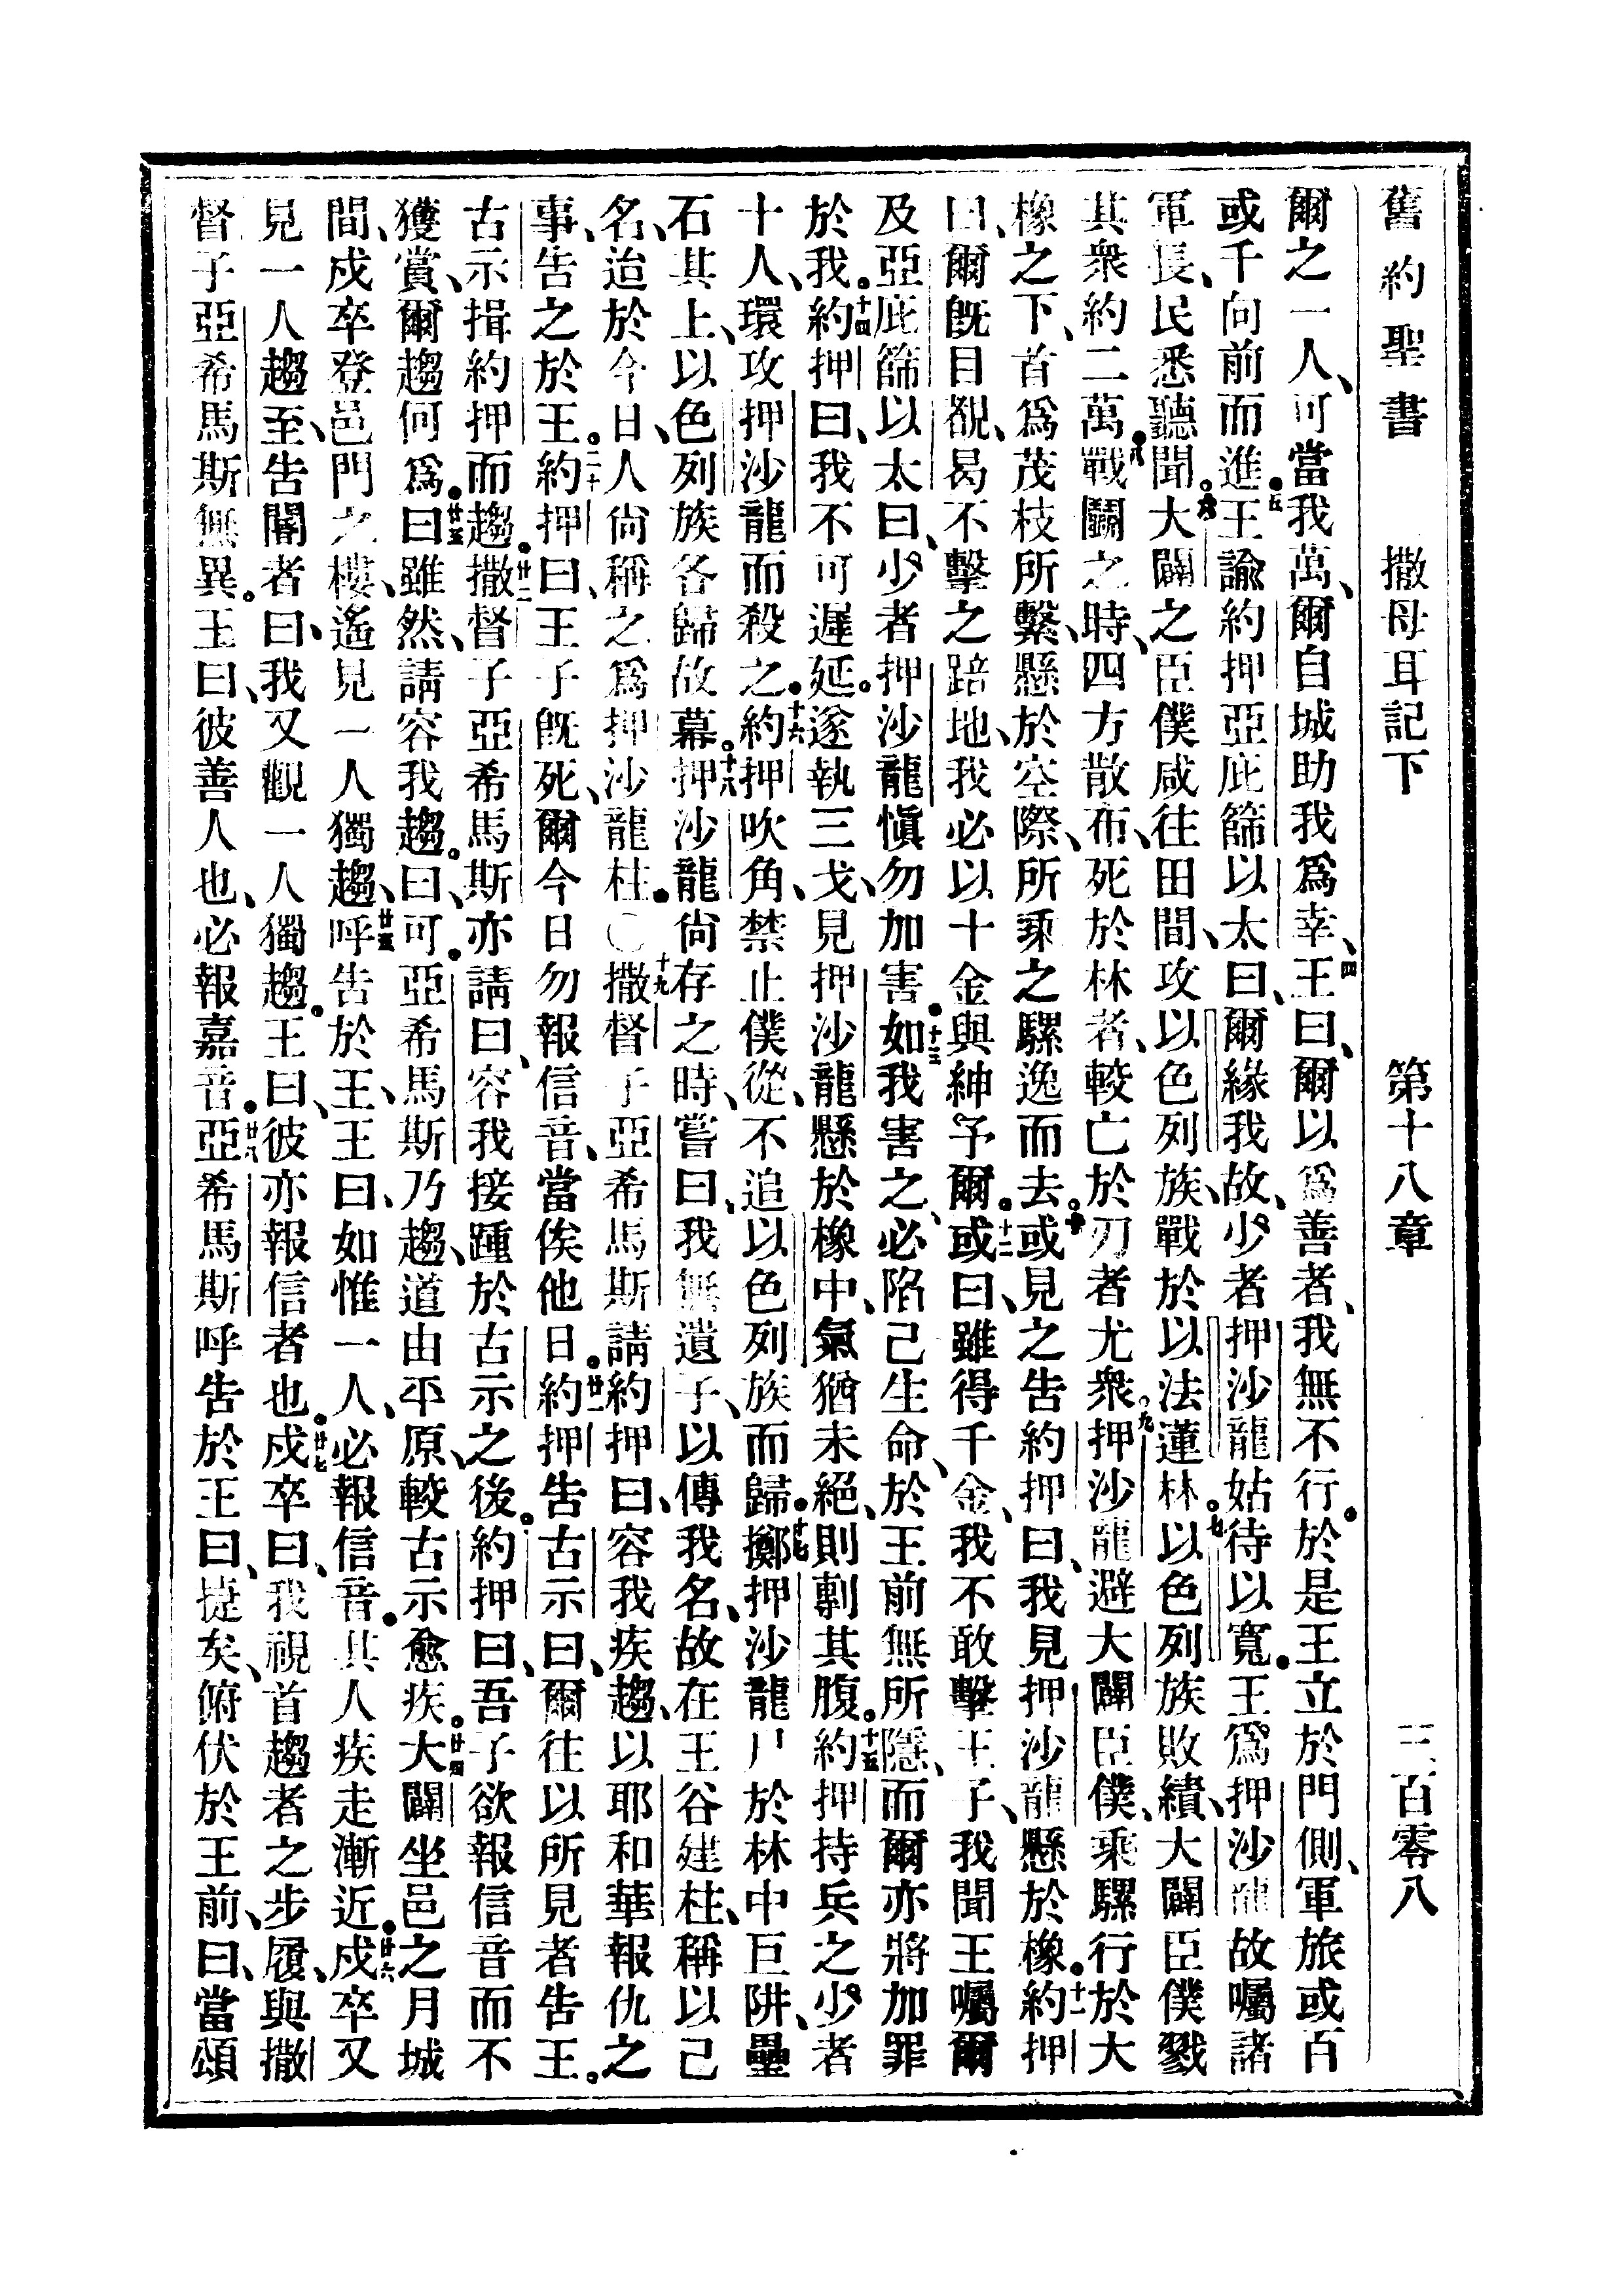 舊約聖書　撒母耳記下　第十八章　三百零八
爾之一人、可當我萬、爾自城助我爲幸、四王曰、爾以爲善者、我無不行。於是王立於門側、軍旅或百
或千向前而進。五王諭約押亞庇篩以太曰、爾緣我故、少者押沙龍姑待以寬。王爲押沙龍故囑諸
軍長、民悉聽聞。六大闢之臣僕咸往田間、攻以色列族、戰於以法蓮林。七以色列族敗績、大闢臣僕戮
其衆約二萬。八戰鬬之時、四方散布、死於林者、較亡於刃者尤衆。九押沙龍避大闢臣僕、乘騾行於大
橡之下、首爲茂枝所繫、懸於空際、所乘之騾逸而去。十或見之告約押曰、我見押沙龍懸於橡。十一約押
曰、爾旣目覩、曷不擊之踣地、我必以十金與紳予爾。十二或曰、雖得千金、我不敢擊王子、我聞王囑爾
及亞庇篩以太曰、少者押沙龍愼勿加害。十三如我害之、必陷己生命、於王前無所隱、而爾亦將加罪
於我。十四約押曰、我不可遲延。遂執三戈、見押沙龍懸於橡中、氣猶未絕、則剚其腹。十五約押持兵之少者
十人、環攻押沙龍而殺之。十六約押吹角、禁止僕從、不追以色列族而歸。十七擲押沙龍尸於林中巨阱、壘
石其上、以色列族各歸故幕。十八押沙龍尙存之時、嘗曰、我無遺子、以傳我名、故在王谷建柱、稱以己
名、迨於今日、人尙稱之爲押沙龍柱。〇十九撒督子亞希馬斯請約押曰、容我疾趨、以耶和華報仇之
事、告之於王。二十約押曰、王子旣死、爾今日勿報信音、當俟他日。廿一約押告古示曰、爾往以所見者告王。
古示揖約押而趨。廿二撒督子亞希馬斯亦請曰、容我接踵於古示之後。約押曰、吾子欲報信音而不
獲賞、爾趨何爲。廿三曰、雖然、請容我趨。曰、可。亞希馬斯乃趨、道由平原、較古示愈疾。廿四大闢坐邑之月城
間、戍卒登邑門之樓、遙見一人獨趨、廿五呼告於王、王曰、如惟一人、必報信音。其人疾走漸近。廿六戍卒又
見一人趨至、告閽者曰、我又觀一人獨趨。王曰、彼亦報信者也。廿七戍卒曰、我視首趨者之步履、與撒
督子亞希馬斯無異。王曰、彼善人也、必報嘉音。廿八亞希馬斯呼告於王曰、捷矣、俯伏於王前、曰、當頌